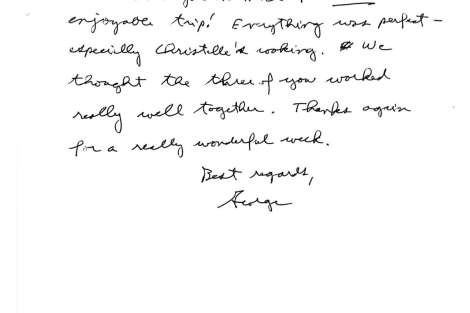 enjoyable trip! Everything was perfect –
especially Christelle's cooking. We
thought the three of you worked
really well together. Thanks again
for a really wonderful week.
Best regards,
George